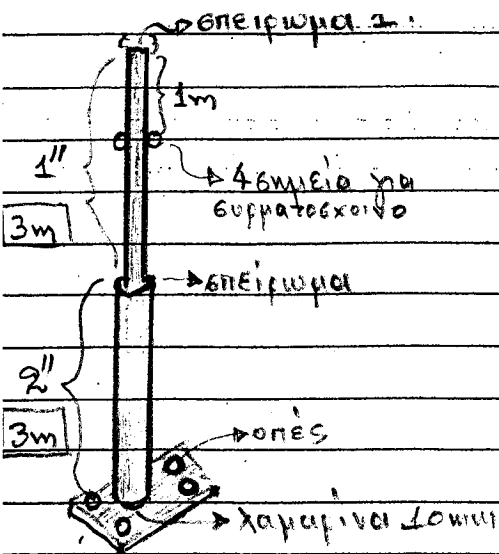 σπείρωμα 1.
1m
1"
4 σημεία για
συρματοσχοινο
3m
σπείρωμα
2"
3m
οπές
λαμαρίνα 10mm